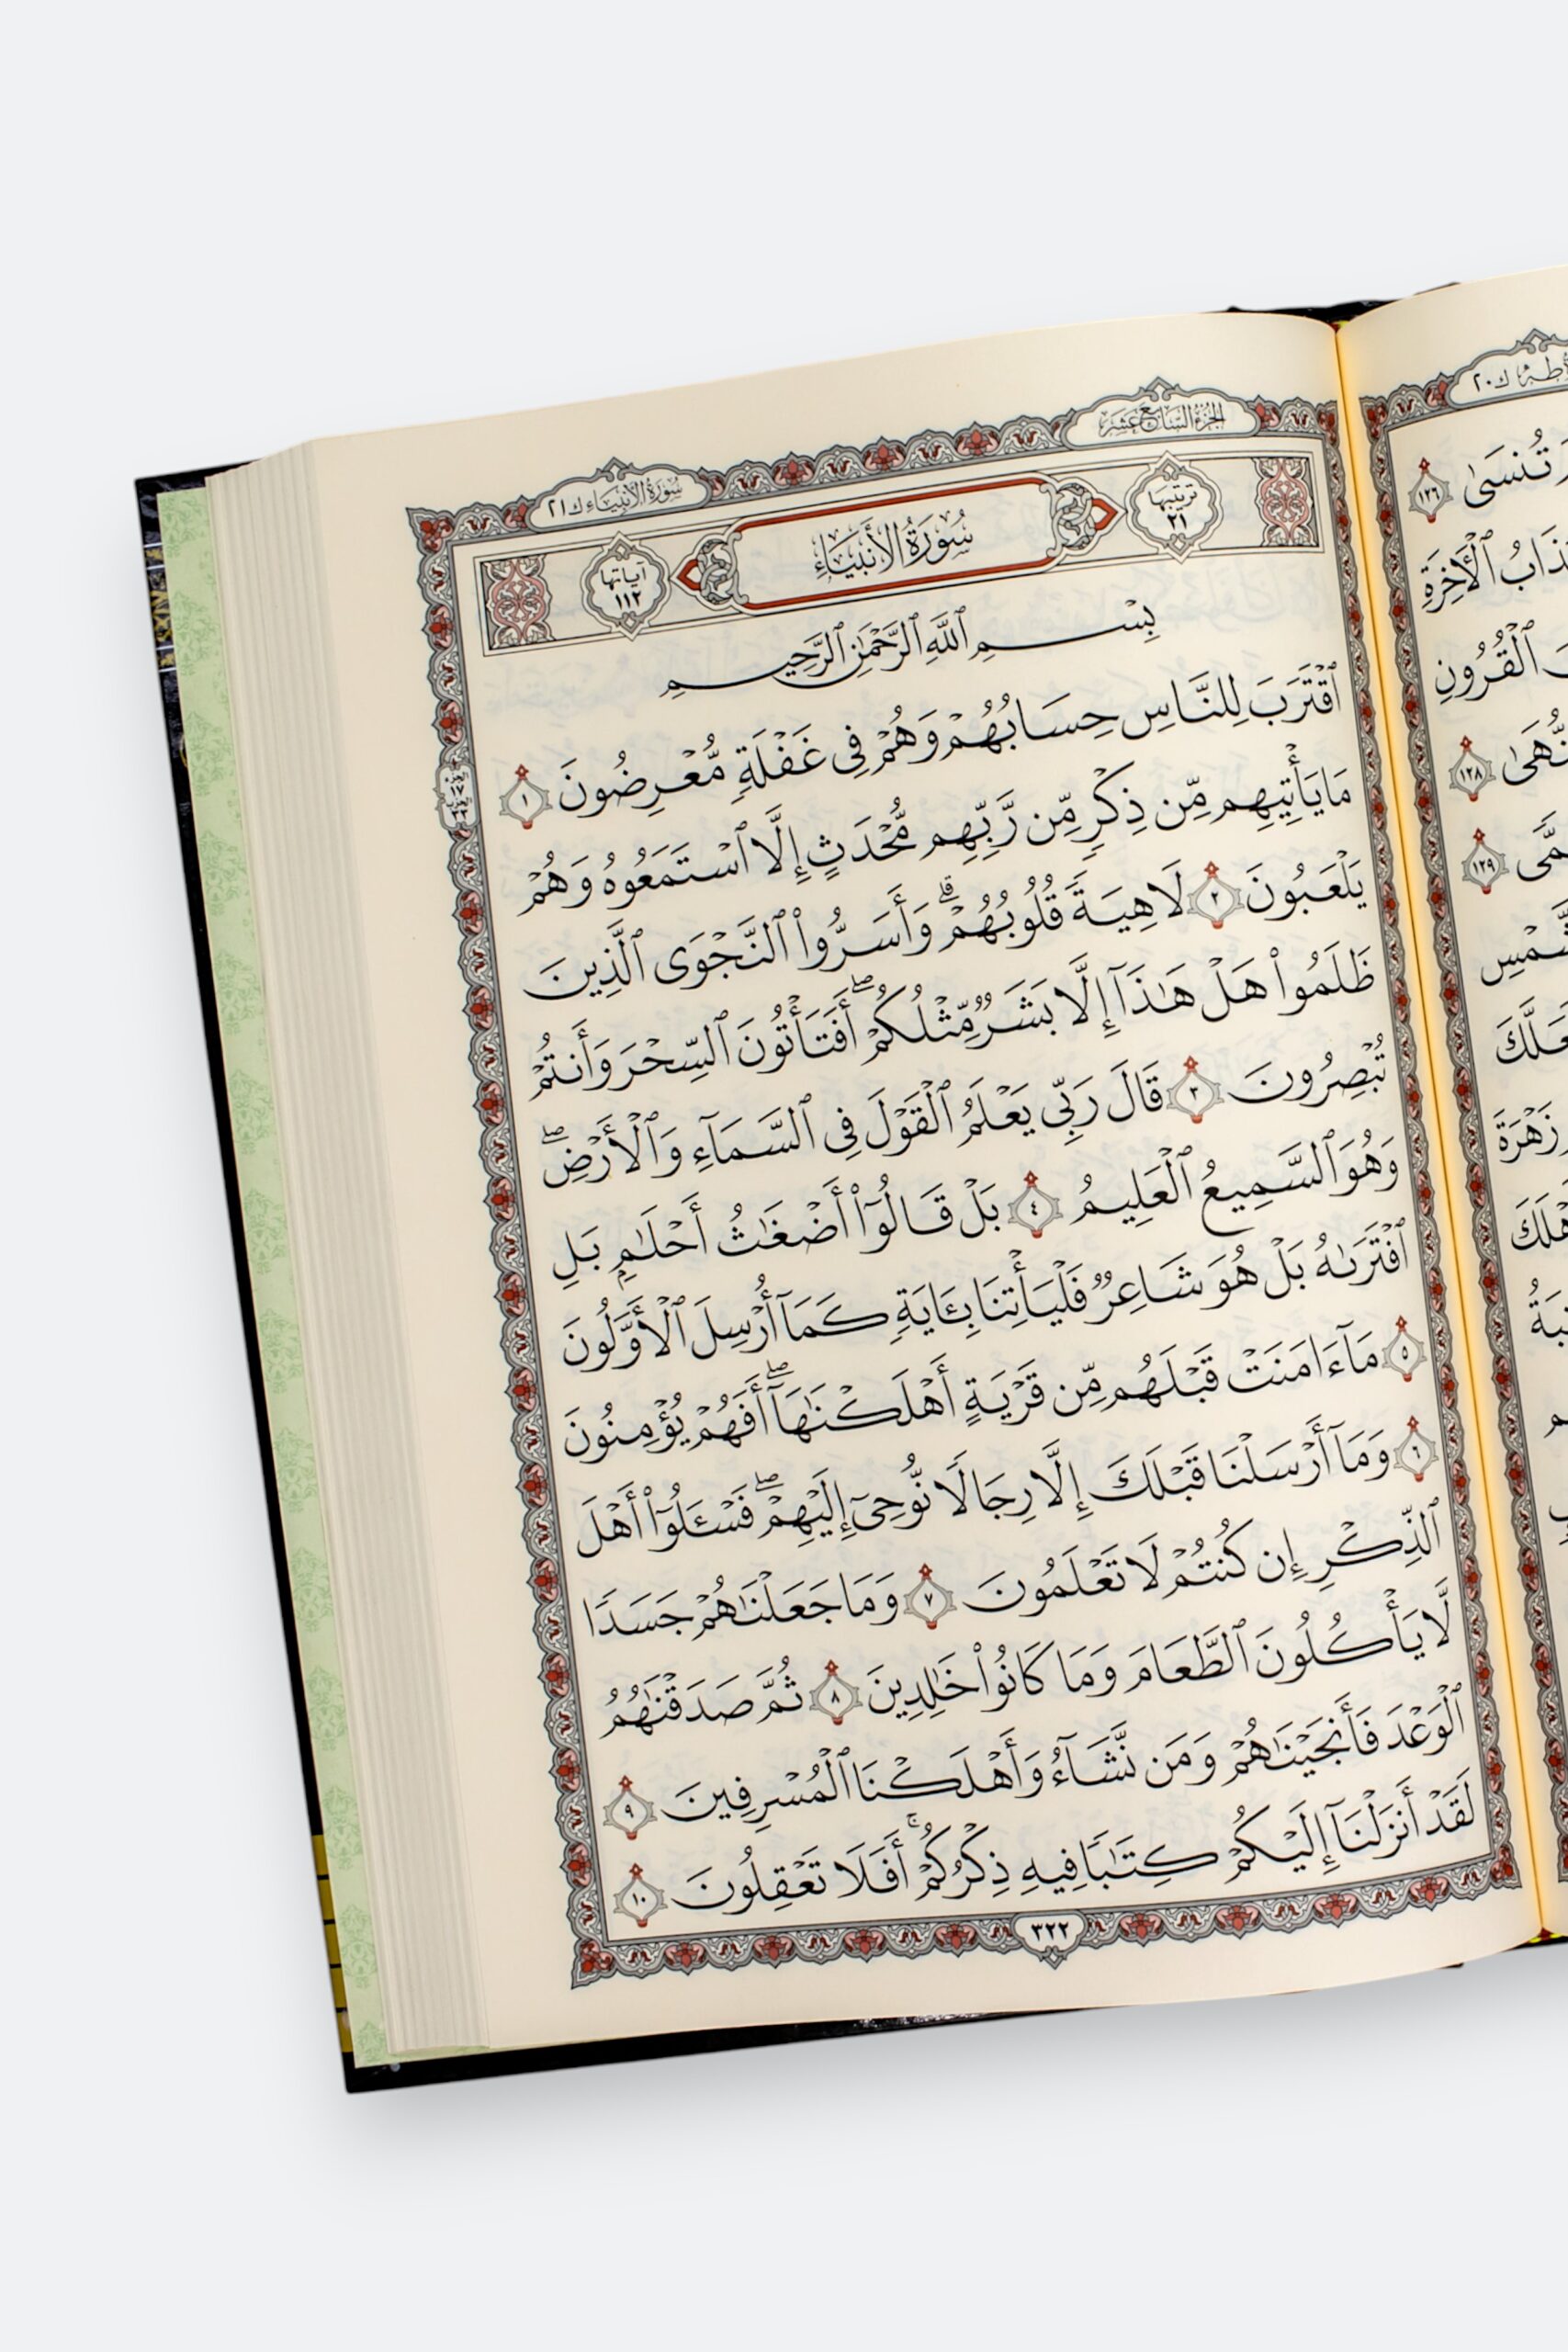 طه ك٢٠
تَنسَىٰ ١٢٦
ٱلْأَخِرَةِ
ٱلْقُرُونِ
١٢٨
١٢٩
زَهْرَةَ
الجزء السابع عشر
سورة الأنبياء ك٢١
ترتيبها ٢١
سُورَةُ الأَنبِيَاءِ
آياتها ١١٢
بِسْمِ ٱللَّهِ ٱلرَّحْمَٰنِ ٱلرَّحِيمِ
ٱقْتَرَبَ لِلنَّاسِ حِسَابُهُمْ وَهُمْ فِى غَفْلَةٍ مُّعْرِضُونَ ١
مَا يَأْتِيهِم مِّن ذِكْرٍ مِّن رَّبِّهِم مُّحْدَثٍ إِلَّا ٱسْتَمَعُوهُ وَهُمْ
يَلْعَبُونَ ٢ لَاهِيَةً قُلُوبُهُمْ ۗ وَأَسَرُّوا۟ ٱلنَّجْوَى ٱلَّذِينَ
ظَلَمُوا۟ هَلْ هَٰذَآ إِلَّا بَشَرٌ مِّثْلُكُمْ ۖ أَفَتَأْتُونَ ٱلسِّحْرَ وَأَنتُمْ
تُبْصِرُونَ ٣ قَالَ رَبِّى يَعْلَمُ ٱلْقَوْلَ فِى ٱلسَّمَآءِ وَٱلْأَرْضِ ۖ
وَهُوَ ٱلسَّمِيعُ ٱلْعَلِيمُ ٤ بَلْ قَالُوٓا۟ أَضْغَٰثُ أَحْلَٰمٍۭ بَلِ
ٱفْتَرَىٰهُ بَلْ هُوَ شَاعِرٌ فَلْيَأْتِنَا بِـَٔايَةٍ كَمَآ أُرْسِلَ ٱلْأَوَّلُونَ
٥ مَآ ءَامَنَتْ قَبْلَهُم مِّن قَرْيَةٍ أَهْلَكْنَٰهَآ ۖ أَفَهُمْ يُؤْمِنُونَ
٦ وَمَآ أَرْسَلْنَا قَبْلَكَ إِلَّا رِجَالًا نُّوحِىٓ إِلَيْهِمْ ۖ فَسْـَٔلُوٓا۟ أَهْلَ
ٱلذِّكْرِ إِن كُنتُمْ لَا تَعْلَمُونَ ٧ وَمَا جَعَلْنَٰهُمْ جَسَدًا
لَّا يَأْكُلُونَ ٱلطَّعَامَ وَمَا كَانُوا۟ خَٰلِدِينَ ٨ ثُمَّ صَدَقْنَٰهُمُ
ٱلْوَعْدَ فَأَنجَيْنَٰهُمْ وَمَن نَّشَآءُ وَأَهْلَكْنَا ٱلْمُسْرِفِينَ ٩
لَقَدْ أَنزَلْنَآ إِلَيْكُمْ كِتَٰبًا فِيهِ ذِكْرُكُمْ ۖ أَفَلَا تَعْقِلُونَ ١٠
٣٢٢